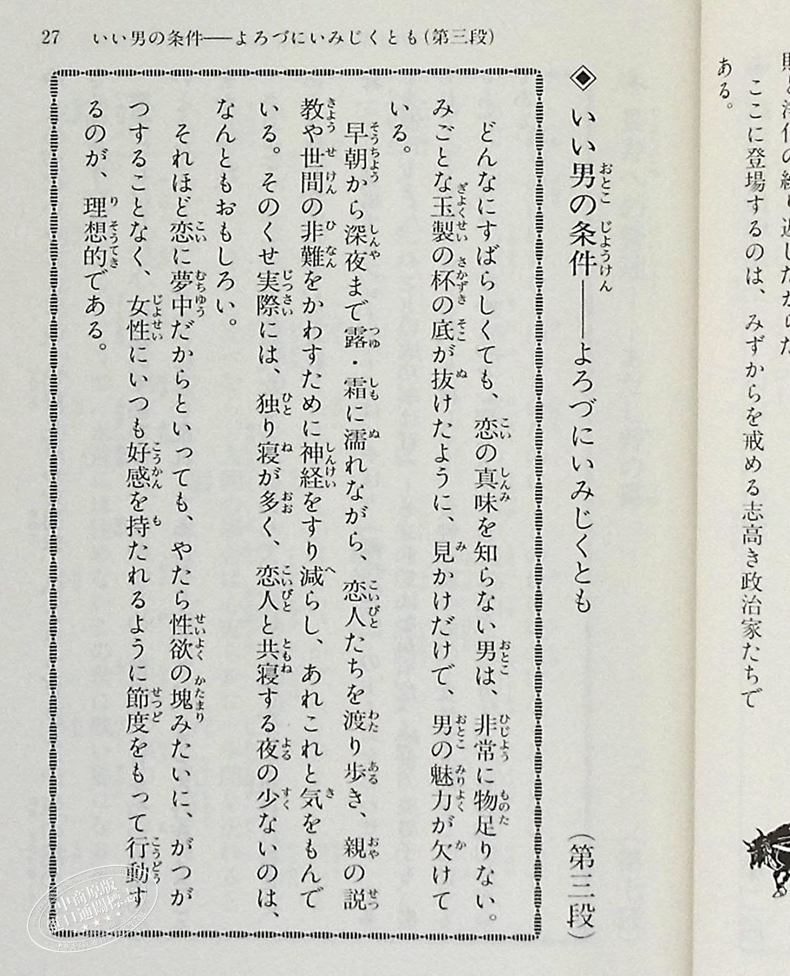 ここに登場するのは、みずからを戒める志高き政治家たちで
ある。
27 いい男の条件——よろづにいみじくとも(第三段)
◈いい男の条件——よろづにいみじくとも (第三段)
どんなにすばらしくても、恋の真味を知らない男は、非常に物足りない。
みごとな玉製の杯の底が抜けたように、見かけだけで、男の魅力が欠けて
いる。
早朝から深夜まで露・霜に濡れながら、恋人たちを渡り歩き、親の説
教や世間の非難をかわすために神経をすり減らし、あれこれと気をもんで
いる。そのくせ実際には、独り寝が多く、恋人と共寝する夜の少ないのは、
なんともおもしろい。
それほど恋に夢中だからといっても、やたら性欲の塊みたいに、がつが
つすることなく、女性にいつも好感を持たれるように節度をもって行動す
るのが、理想的である。
中商原版